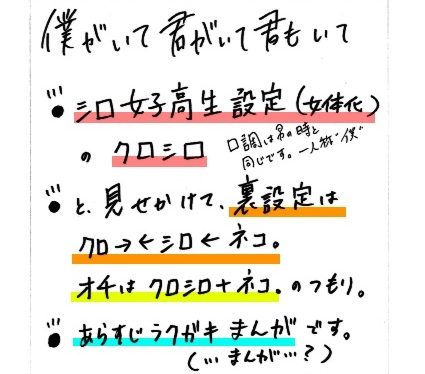 僕がいて君がいて君もいて
● シロ女子高生設定(女体化)
の クロシロ
口調は常の時と
同じです。一人称"僕"
● と、見せかけて、裏設定は
クロ→←シロ←ネコ。
オチは クロシロ+ネコ。のつもり。
● あらすじラクガキまんがです。
(…まんが…?)